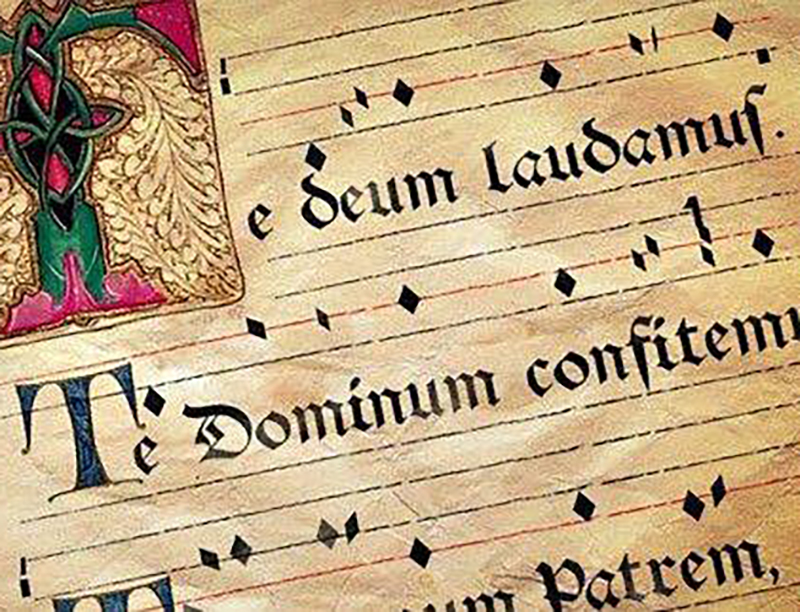 Te deum laudamus.
Te Dominum confitemu
um Patrem,